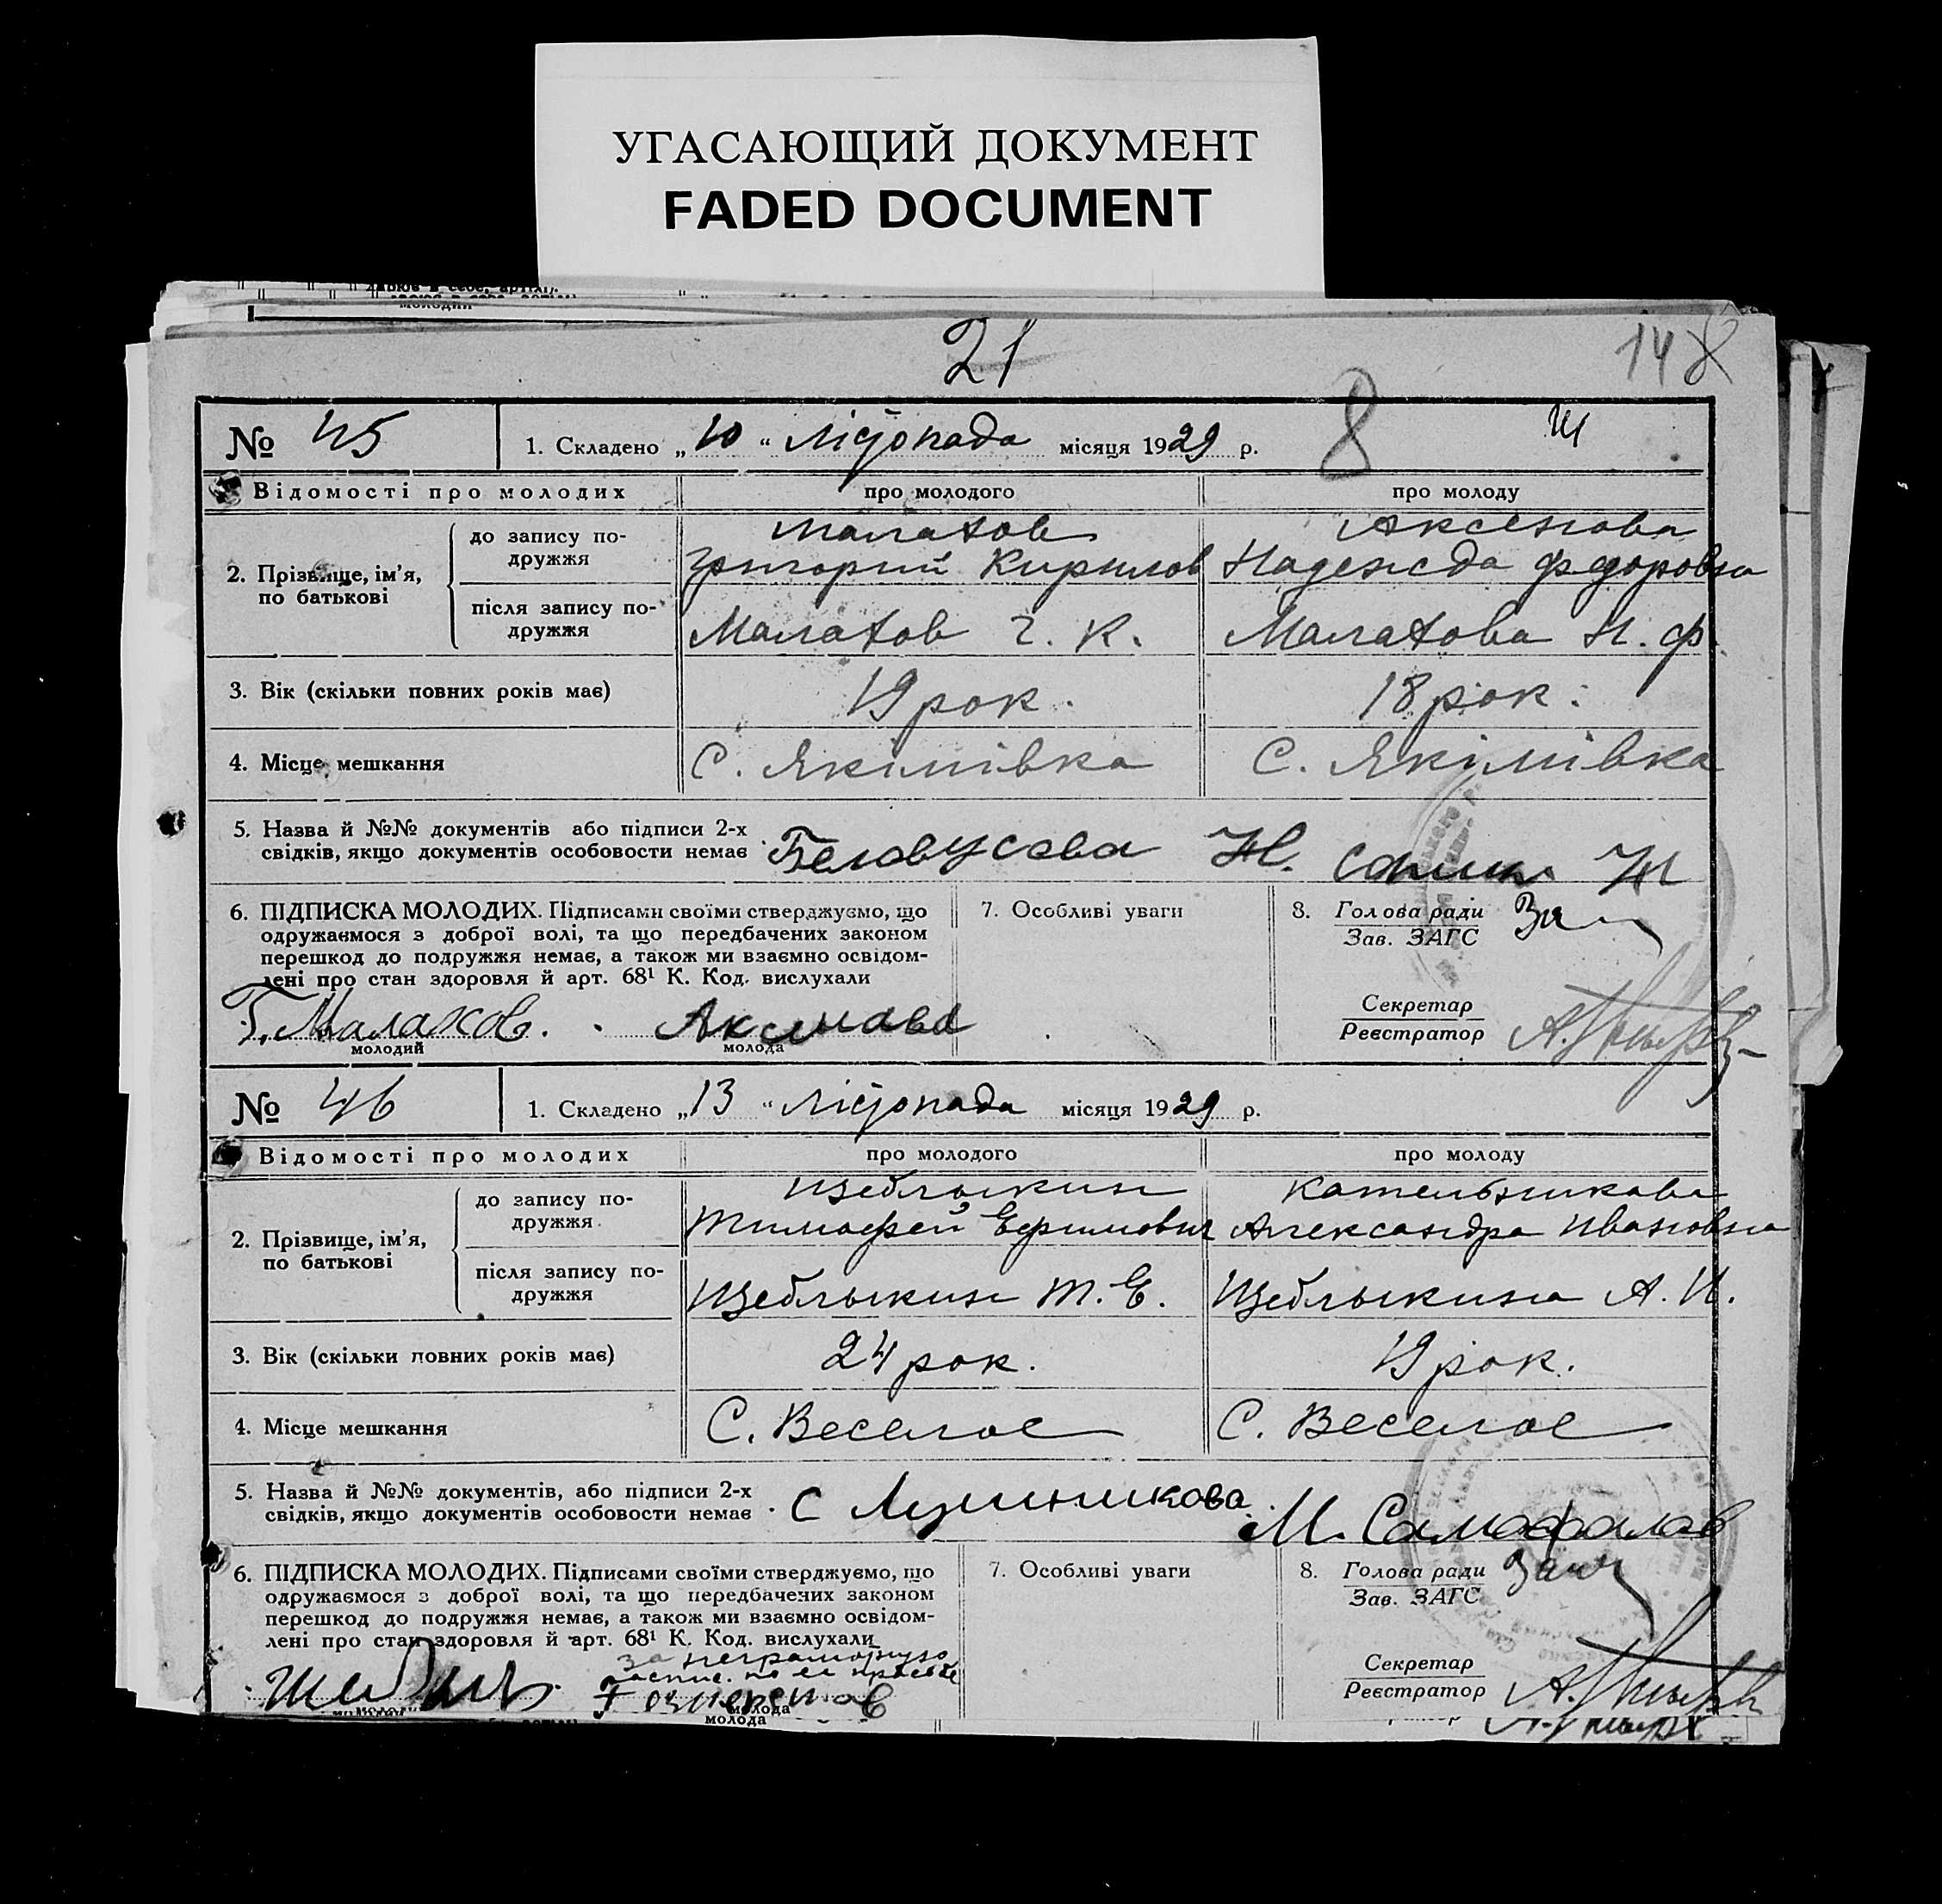 УГАСАЮЩИЙ ДОКУМЕНТ
FADED DOCUMENT
21
14
8
№ 45 1. Складено „10“ Лістопада місяця 1929 р.
Відомості про молодих про молодого про молоду
2. Прізвище, ім’я, по батькові
до запису по-
дружжя
Малахов
Григорий Кирилов
Аксенова
Надежда Федоровна
після запису по-
дружжя
Малахов Г. К. Малахова Н. Ф.
3. Вік (скільки повних років має) 19 рок. 18 рок.
4. Місце мешкання С. Якімівка С. Якімівка
5. Назва й №№ документів або підписи 2-х
свідків, якщо документів особовости немає Белоусова Н.
6. ПІДПИСКА МОЛОДИХ. Підписами своїми стверджуємо, що
одружаємося з доброї волі, та що передбачених законом
перешкод до подружжя немає, а також ми взаємно освідом-
лені про стан здоровля й арт. 68¹ К. Код. вислухали
Г. Малахов. Аксенова
молодий молода
7. Особливі уваги
8. Голова ради
Зав. ЗАГС
Секретар
Реєстратор
№ 46 1. Складено „13“ Лістопада місяця 1929 р.
Відомості про молодих про молодого про молоду
2. Прізвище, ім’я, по батькові
до запису по-
дружжя
Щеблыкин
Тимофей Ефимович
Кательникова
Александра Ивановна
після запису по-
дружжя
Щеблыкин Т. Е. Щеблыкина А. И.
3. Вік (скільки повних років має) 24 рок. 19 рок.
4. Місце мешкання С. Веселое С. Веселое
5. Назва й №№ документів, або підписи 2-х
свідків, якщо документів особовости немає С М. Самофалов
6. ПІДПИСКА МОЛОДИХ. Підписами своїми стверджуємо, що
одружаємося з доброї волі, та що передбачених законом
перешкод до подружжя немає, а також ми взаємно освідом-
лені про стан здоровля й арт. 68¹ К. Код. вислухали
за неграмотную
распис. по ее просьбе
молода
7. Особливі уваги
8. Голова ради
Зав. ЗАГС
Секретар
Реєстратор
молода